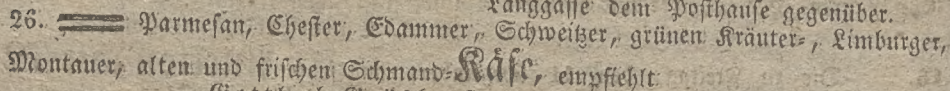 Langgasse dem Posthause gegenüber.
26. Parmesan, Chester, Edammer, Schweitzer, grünen Kräuter-, Limburger,
Montauer, alten und frischen Schmand-Käse, empfiehlt